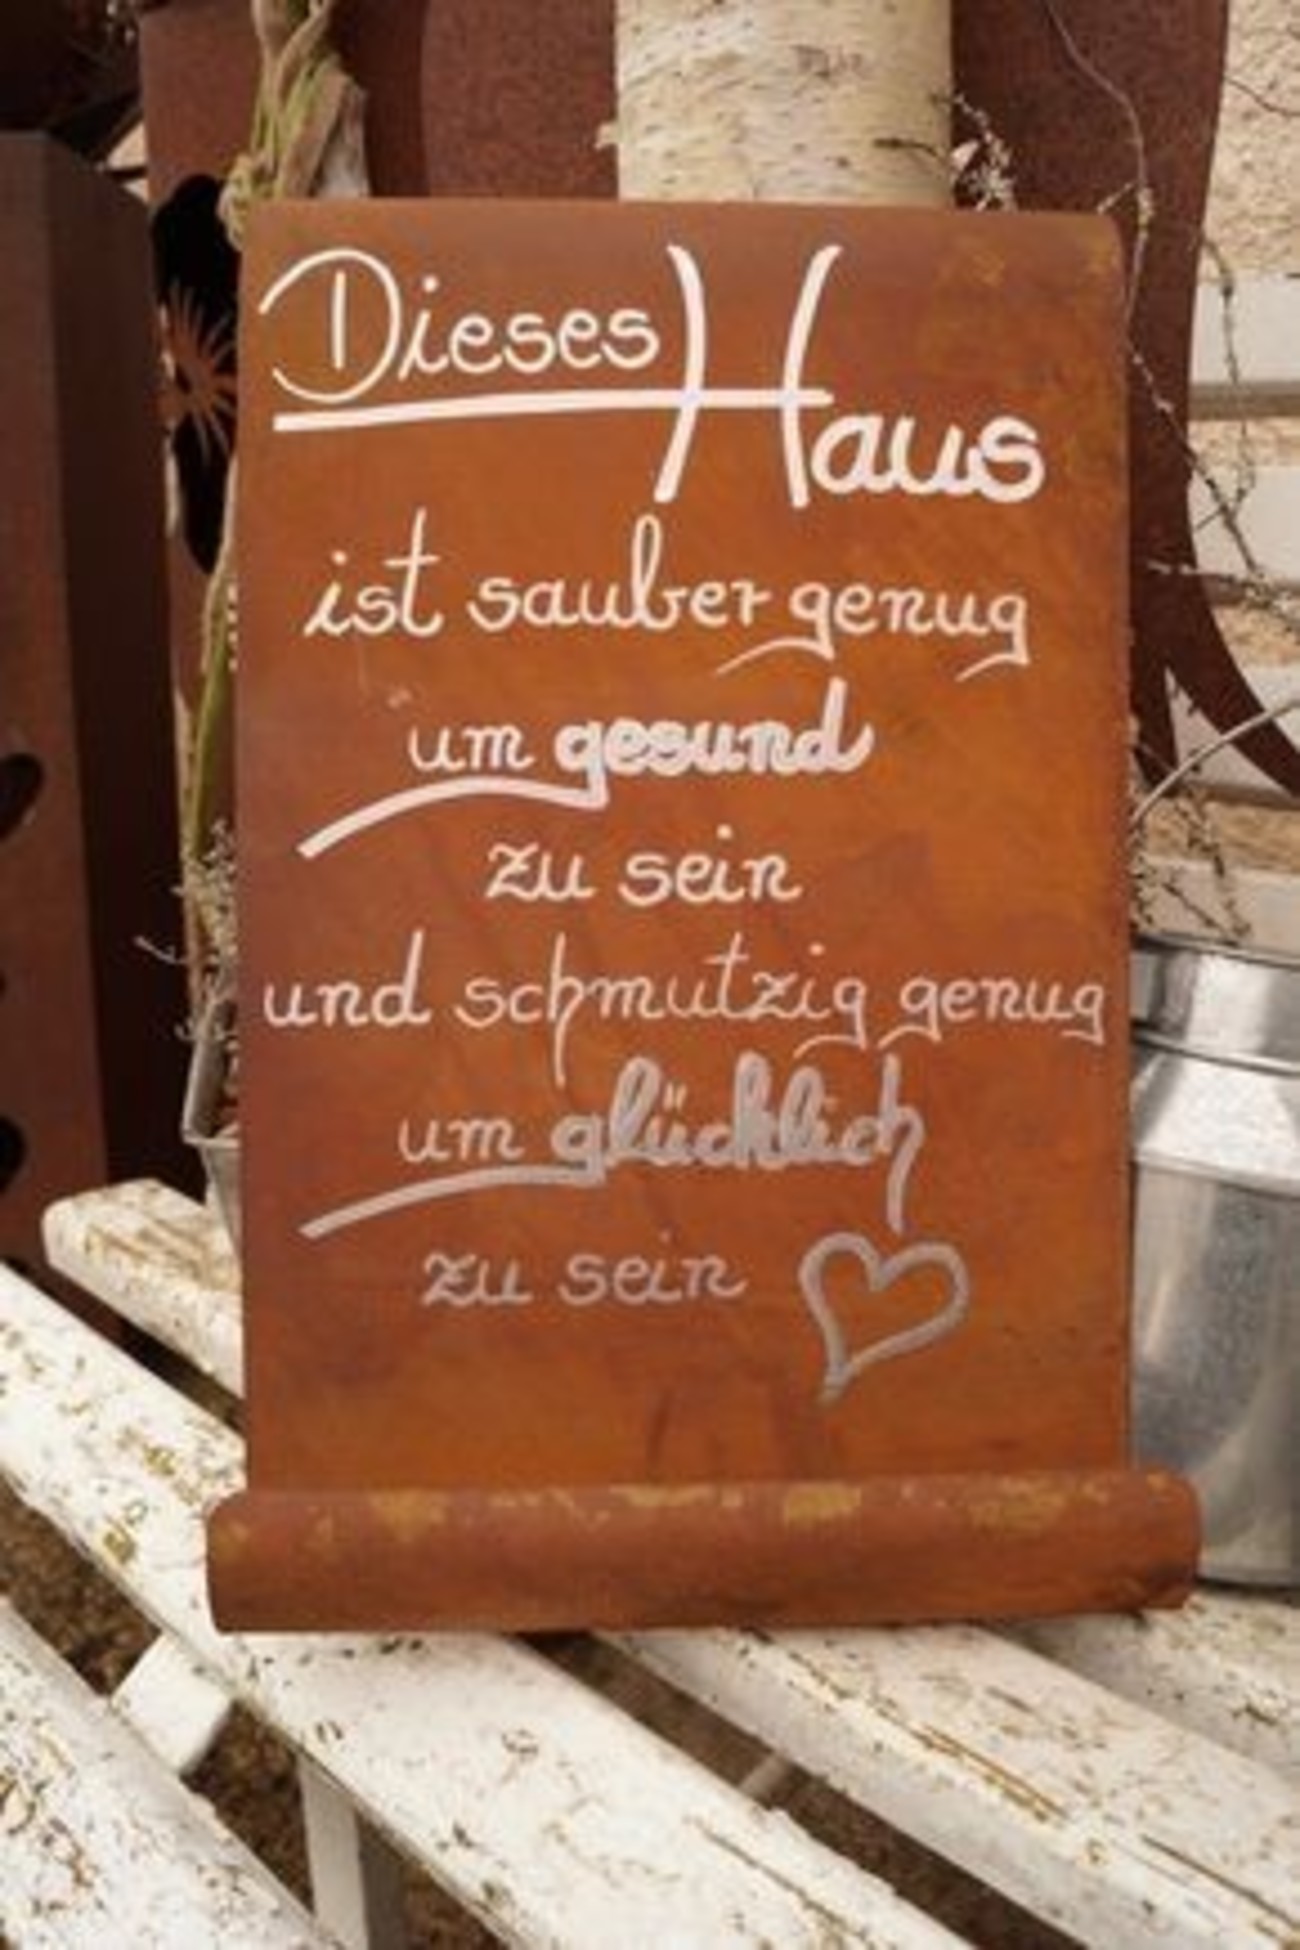 Dieses Haus
ist sauber genug
um gesund
zu sein
und schmutzig genug
um glücklich
zu sein